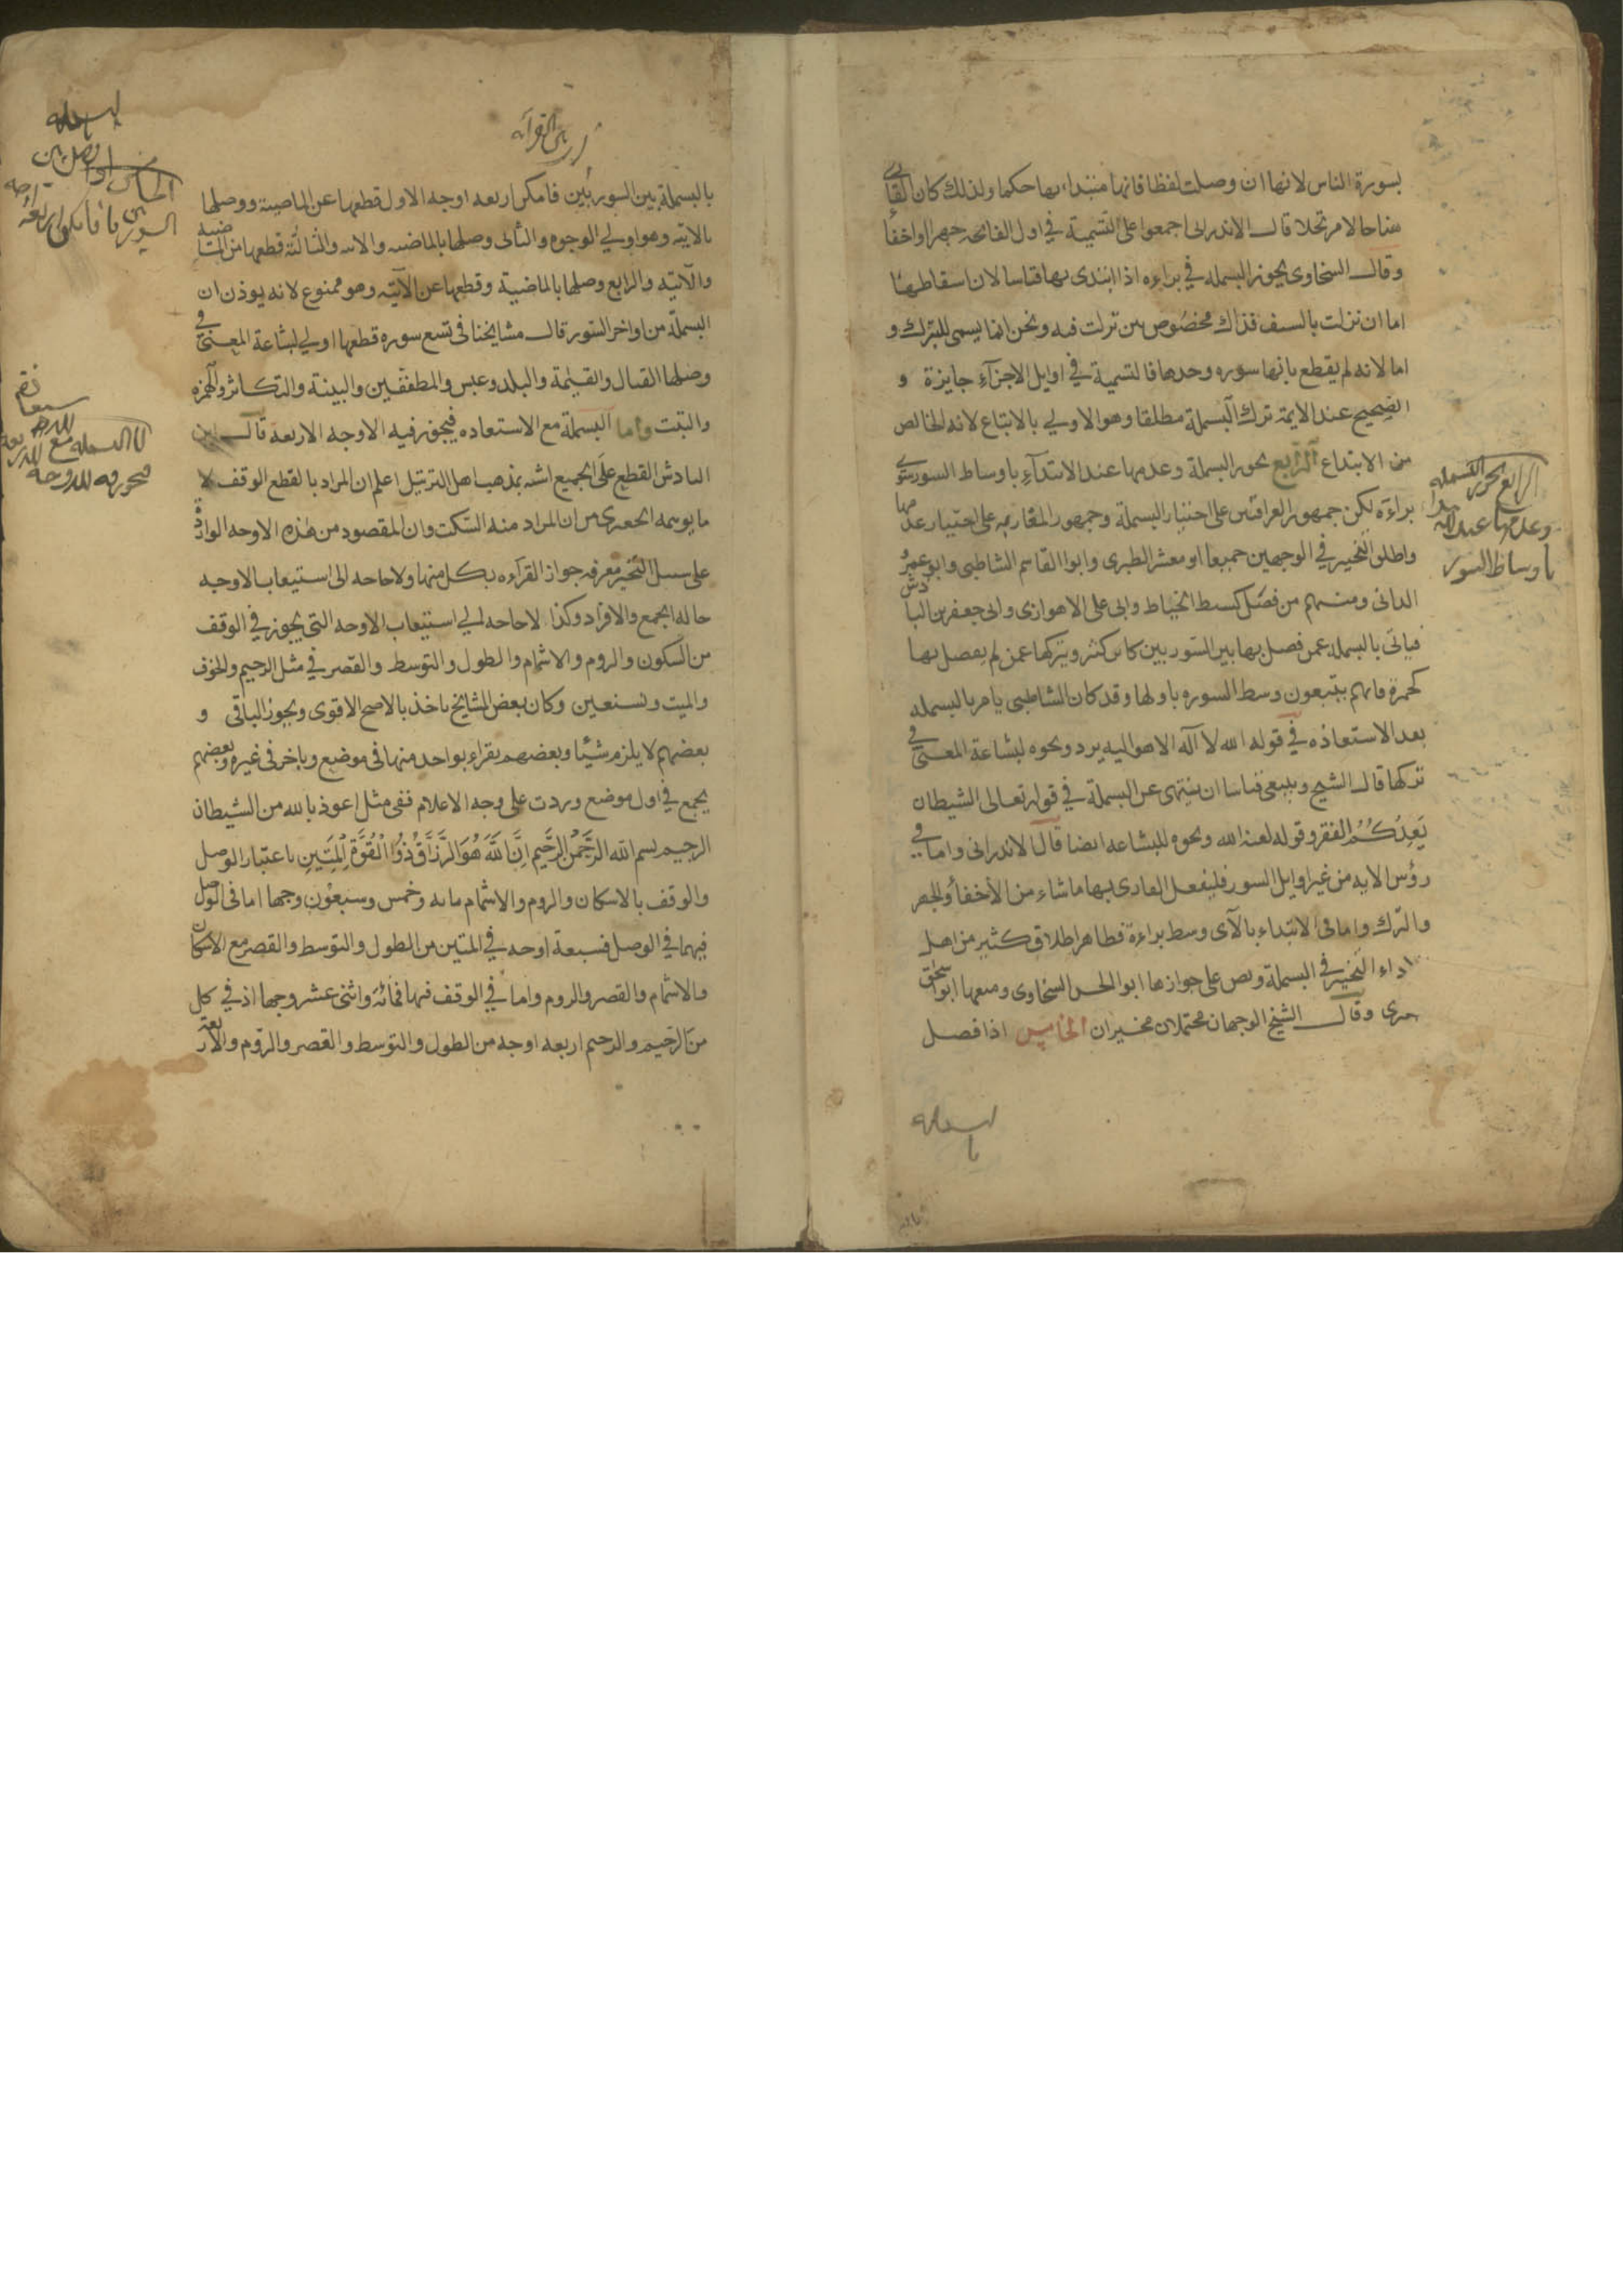 بسورة الناس لانها ان وصلت لفظا فانها مبتداء بها حكما ولذلك كان القارى
هنا حالا مرتحلا قال الاندرابى اجمعوا على التسمية في اول الفاتحه جهرا واخفا
وقال السخاوى يجوز البسمله في براءه اذا ابتدى بها قياسا لان اسقاطها
اما ان نزلت بالسيف فذاك مخصوص بمن نزلت فيه ونحن انما يسمى للتبرك و
اما لانه لم يقطع بانها سوره وحدها فالتسمية في اوايل الاجزاء جايزة و
الصحيح عند الايمة ترك البسملة مطلقا وهو الاولي بالاتباع لانه الخالص
من الابتداع الرابع يجوز البسملة وعدمها عند الابتداء باوساط السور سوى
براءة لكن جمهور العراقيين على اختيار البسملة وجمهور المغاربه على اختيار عدمها
واطلق التخيير في الوجهين جميعا ابو معشر الطبرى وابوا القاسم الشاطبى وابو عمرو
الدانى ومنهم من فصل كسبط الخياط وابى على الاهوازى وابى جعفر بن الباذش
فياتى بالبسمله عمن فصل بها بين السورتين كابن كثير ويتركها عمن لم يفصل بها
كحمزة فانهم يتبعون وسط السوره باولها وقد كان الشاطبى يامر بالبسمله
بعد الاستعاذه في قوله الله لا اله الا هو اليه يرد ونحوه لبشاعة المعنى في
تركها قال الشيخ وينبغى قياسا ان ينتهى عن البسملة في قوله تعالى الشيطان
يَعِدُكُمُ الفقر وقوله لعنه الله ونحوه للبشاعه ايضا قال الاندرابى واما في
رؤس الايه من غير اوايل السور فليفعل القارى بها ما شاء من الاخفاء والجهر
والترك واما فى الابتداء بالآى وسط براءة فظاهر اطلاق كثير من اهل
اداء التخيير في البسملة ونص على جوازها ابوا الحسن السخاوى ومنعها ابوا اسحق
جعبرى وقال الشيخ الوجهان محتملان مخيران الخامس اذا فصل
بالبسمله
الرابع يجوز البسمله
وعدمها عند الابتدا
باوساط السور
بالبسملة بين السورتين فامكن اربعه اوجه الاول قطعها عن الماضية ووصلها
بالاتيه وهو اولي الوجوه والثانى وصلها بالماضيه والاتيه والثالثة قطعها من الماضيه
والآتية والرابع وصلها بالماضية وقطعها عن الآتيه وهو ممنوع لانه يوذن ان
البسملة من اواخر السور قال مشايخنا فى تسع سوره قطعها اولي لبشاعة المعنى في
وصلها القتال والقيٰمة والبلد وعبس والمطففين والبينة والتكاثر والهمزه
والتبت واما البسملة مع الاستعاده فيجوز فيه الاوجه الاربعه قال ابن
البادش القطع على الجميع اشبه بمذهب اهل الترتيل اعلم ان المراد بالقطع الوقف لا
ما يوهمه الجعبرى من ان المراد منه السكت وان المقصود من هذه الاوجه الواردة
على سبيل التخيير معرفه جواز القرآءه بكل منها ولا حاجه الى استيعاب الاوجه
حاله الجمع والافراد وكذا لا حاجه الي استيعاب الاوجه التى يجوز في الوقف
من السكون والروم والاشمام والطول والتوسط والقصر في مثل الرحيم والخوف
والميت ونستعين وكان بعض المشايخ ياخذ بالاصح الاقوى ويجوز الباقى و
بعضهم لا يلزم شيئا وبعضهم يقراء بواحد منها فى موضع وباخر فى غيره وبعضهم
يجمع في اول موضع وردت على وجه الاعلام ففى مثل اعوذ بالله من الشيطان
الرجيم بسم الله الرَّحْمٰنِ الرَّحِيم اِنَّ اللّٰهَ هُوَ الرَّزَّاقُ ذُوا الْقُوَّةِ الْمَتِينِ باعتبار الوصل
والوقف بالاسكان والروم والاشمام مايه وخمس وسبعون وجها اما فى الوصل
فيهما في الوصل فسبعة اوجه في المتين من الطول والتوسط والقصر مع الاسكان
والاشمام والقصر والروم واما في الوقف فيها فمائة واثنى عشر وجها اذ في كل
من الرجيم والرحيم اربعه اوجه من الطول والتوسط والقصر والروم والاربعة
الخامس اذا فصل بين
السورتين فامكن اربعة اوجه
اما البسمله مع
فيجوز فيه الاوجه